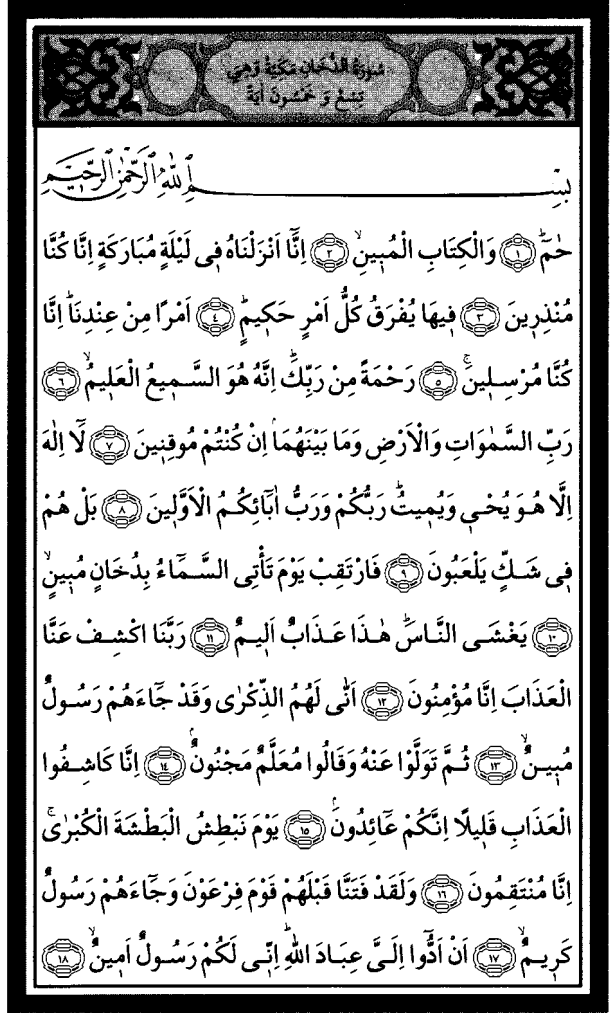 سُورَةُ الدُّخَانِ مَكِّيَّةٌ وَهِيَ
تِسْعٌ وَ خَمْسُونَ اٰيَةً
بِسْمِ اللّٰهِ الرَّحْمٰنِ الرَّحٖيمِ
حٰمٓۜ ﴿١﴾ وَالْكِتَابِ الْمُبٖينِۙ ﴿٢﴾ اِنَّٓا اَنْزَلْنَاهُ فٖى لَيْلَةٍ مُبَارَكَةٍ اِنَّا كُنَّا
مُنْذِرٖينَ ﴿٣﴾ فٖيهَا يُفْرَقُ كُلُّ اَمْرٍ حَكٖيمٍۜ ﴿٤﴾ اَمْرًا مِنْ عِنْدِنَاۜ اِنَّا
كُنَّا مُرْسِلٖينَۚ ﴿٥﴾ رَحْمَةً مِنْ رَبِّكَۜ اِنَّهُ هُوَ السَّمٖيعُ الْعَلٖيمُۙ ﴿٦﴾
رَبِّ السَّمٰوَاتِ وَالْاَرْضِ وَمَا بَيْنَهُمَاۢ اِنْ كُنْتُمْ مُوقِنٖينَ ﴿٧﴾ لَٓا اِلٰهَ
اِلَّا هُوَ يُحْيٖ وَيُمٖيتُۜ رَبُّكُمْ وَرَبُّ اٰبَٓائِكُمُ الْاَوَّلٖينَ ﴿٨﴾ بَلْ هُمْ
فٖى شَكٍّ يَلْعَبُونَ ﴿٩﴾ فَارْتَقِبْ يَوْمَ تَأْتِى السَّمَٓاءُ بِدُخَانٍ مُبٖينٍۙ
﴿١٠﴾ يَغْشَى النَّاسَۜ هٰذَا عَذَابٌ اَلٖيمٌ ﴿١١﴾ رَبَّنَا اكْشِفْ عَنَّا
الْعَذَابَ اِنَّا مُؤْمِنُونَ ﴿١٢﴾ اَنّٰى لَهُمُ الذِّكْرٰى وَقَدْ جَٓاءَهُمْ رَسُولٌ
مُبٖينٌۙ ﴿١٣﴾ ثُمَّ تَوَلَّوْا عَنْهُ وَقَالُوا مُعَلَّمٌ مَجْنُونٌۢ ﴿١٤﴾ اِنَّا كَاشِفُوا
الْعَذَابِ قَلٖيلًا اِنَّكُمْ عَٓائِدُونَۢ ﴿١٥﴾ يَوْمَ نَبْطِشُ الْبَطْشَةَ الْكُبْرٰىۚ
اِنَّا مُنْتَقِمُونَ ﴿١٦﴾ وَلَقَدْ فَتَنَّا قَبْلَهُمْ قَوْمَ فِرْعَوْنَ وَجَٓاءَهُمْ رَسُولٌ
كَرٖيمٌۙ ﴿١٧﴾ اَنْ اَدُّٓوا اِلَىَّ عِبَادَ اللّٰهِۜ اِنّٖى لَكُمْ رَسُولٌ اَمٖينٌۙ ﴿١٨﴾